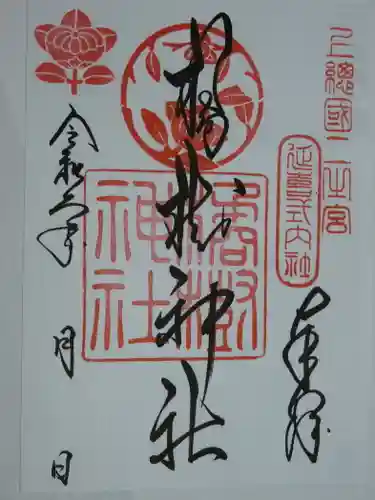 上總國二之宮
延喜式内社
奉拝
橘樹神社
橘樹
神社
令和 年
月
日